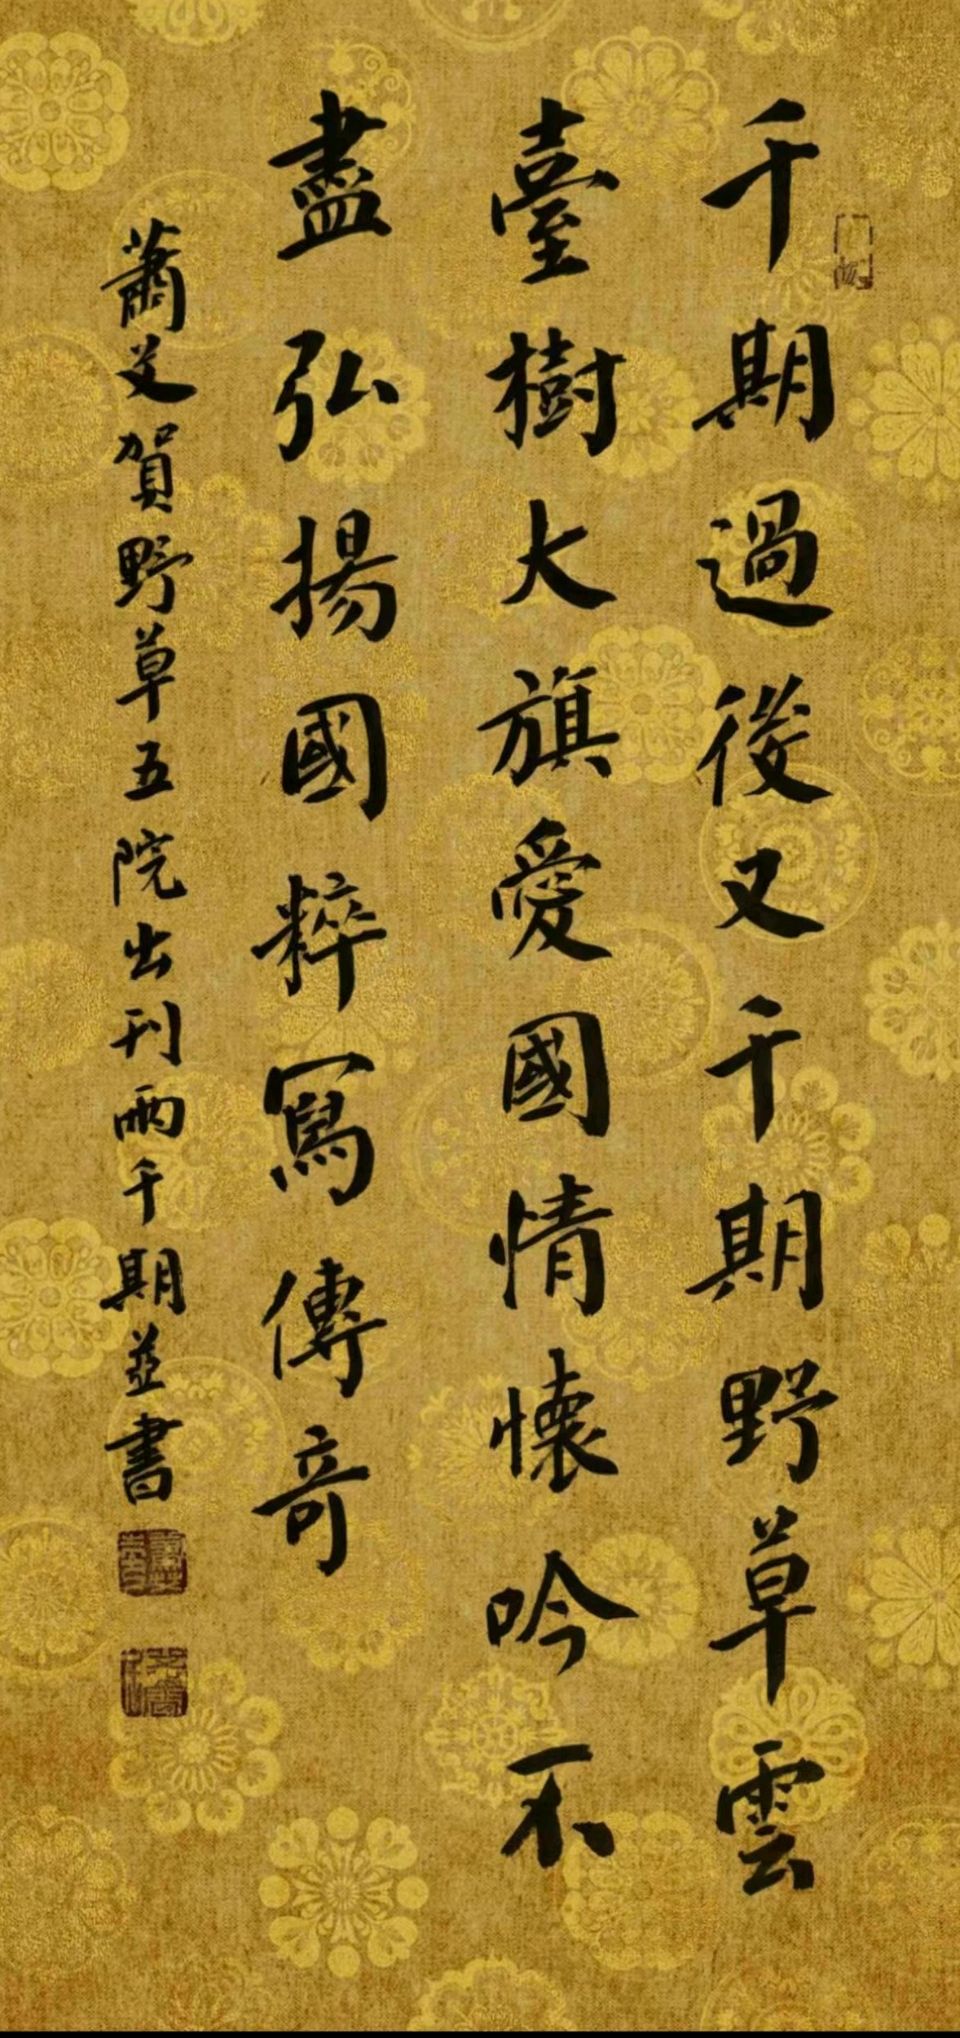 千期過後又千期野草雲
臺樹大旗愛國情懷吟不
盡弘揚國粹寫傳奇
蕭文賀野草五院出刊兩千期並書